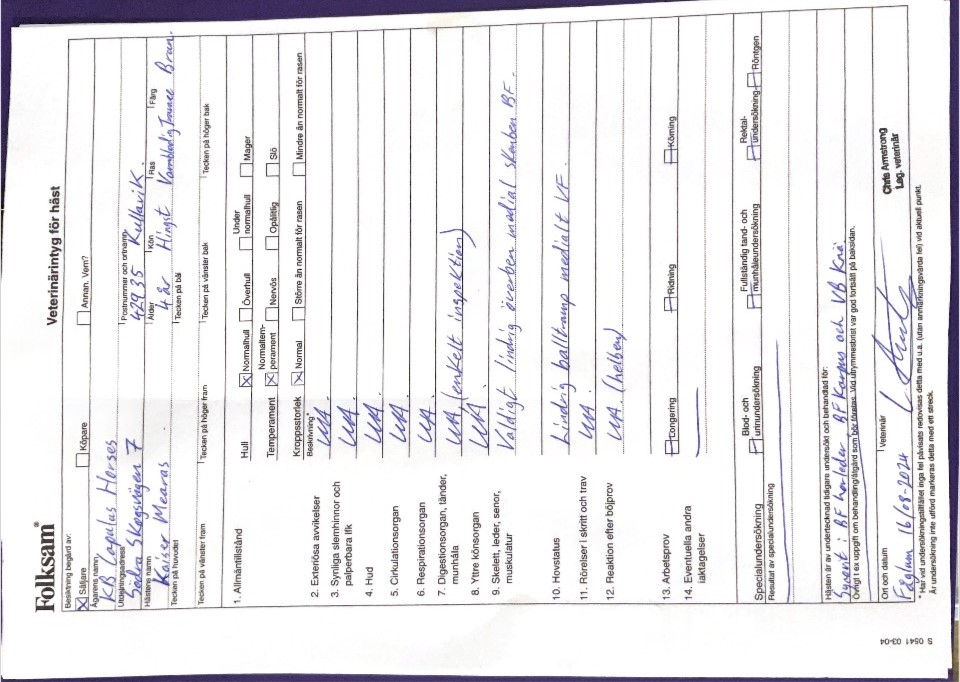 Folksam®
Veterinärintyg för häst
Besiktning begärd av:
Säljare Köpare Annan. Vem?
Ägarens namn
KB Capulus Horses
Utdelningsadress Postnummer och ortnamn
Södra Skogsvägen 7 42935 Kullavik.
Hästens namn Ålder Kön Ras Färg
Kaiser Mearas 4 år Hingst Varmblodig Travare Brun.
Tecken på huvudet Tecken på bål
Tecken på vänster fram Tecken på höger fram Tecken på vänster bak Tecken på höger bak
1. Allmäntillstånd Hull Normalhull Överhull Under normalhull Mager
Temperament Normaltemperament Nervös Opålitlig Slö
Kroppsstorlek Normal Större än normalt för rasen Mindre än normalt för rasen
Beskrivning*
2. Exteriösa avvikelser UA.
3. Synliga slemhinnor och UA.
palperbara lfk
4. Hud UA
5. Cirkulationsorgan UA.
6. Respirationsorgan UA.
7. Digestionsorgan, tänder, UA (enkelt inspektion)
munhåla
8. Yttre könsorgan UA.
9. Skelett, leder, senor, Väldigt lindrig överben medial skenben BF.
muskulatur
10. Hovstatus Lindrig balltramp medialt VF.
11. Rörelser i skritt och trav UA.
12. Reaktion efter böjprov UA. (helben)
13. Arbetsprov Longering Ridning Körning
14. Eventuella andra
iakttagelser
Specialundersökning Blod- och urinundersökning Fullständig tand- och munhåleundersökning Rektalundersökning Röntgen
Resultat av specialundersökning
Hästen är av undertecknad tidigare undersökt och behandlad för:
i BF hovleder, BF Karpus och VB Knä.
Övrigt t ex uppgift om behandling/åtgärd som bör företas. Vid utrymmesbrist var god fortsätt på baksidan.
Ort och datum Veterinär
Fåglum 16/08-2024
Chris Armstrong
Leg. veterinär
* Har vid undersökningstillfället inga fel påvisats redovisas detta med u.a. (utan anmärkningsvärda fel) vid aktuell punkt.
Är undersökning inte utförd markeras detta med ett streck.
S 0541 03-04